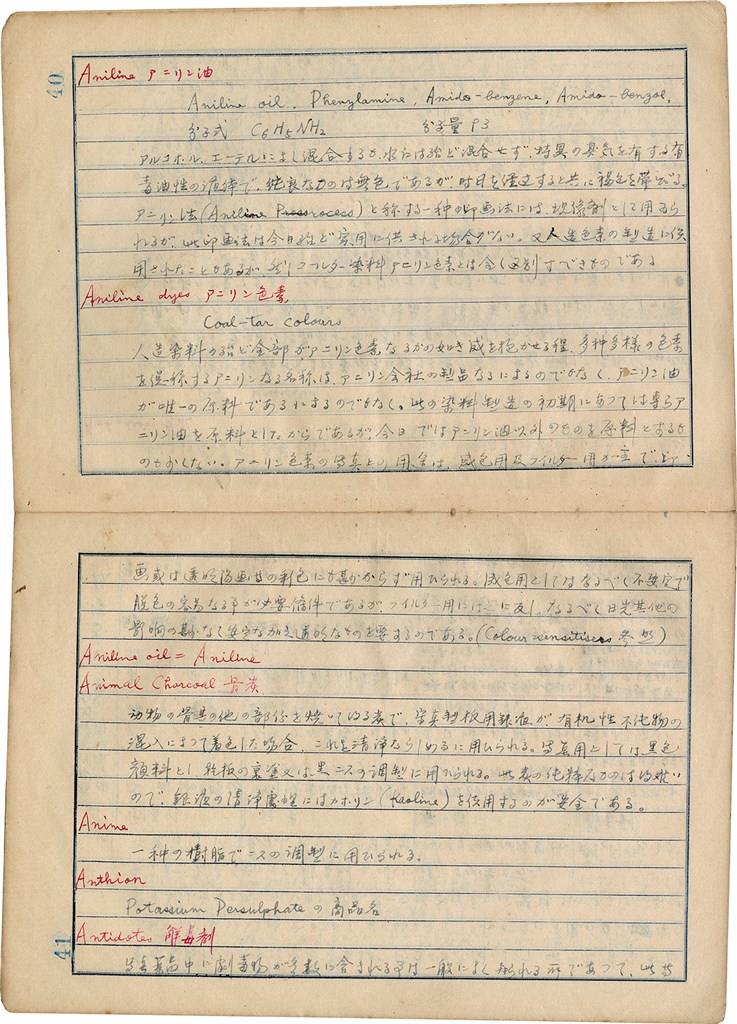 40
Aniline アニリン油
Aniline oil. Phenylamine, Amido-benzene, Amido-benzol.
分子式 C6H5NH2 分子量 93
アルコホル、エーテル によく混合するが、水には殆ど混合せず、特異の臭気を有する有
毒油性の液体で、純良なものは無色であるが時日を経過すると共に褐色を帯びる。
アニリン法(Aniline Process)と称する一種の印画法には、現像剤として用ゐら
れるが、此印画法は今日殆ど実用に供される場合がない。又人造色素の製造に供
用されたことがあるが、然しコールター染料アニリン色素とは全く区別すべきものである
Aniline dyes アニリン色素
Coal-tar colours
人造染料の殆ど全部がアニリン色素なるかの如き感を抱かせる程、多種多様の色素
を総称するアニリンなる名称は、アニリン会社の製品なるによるのでなく、アニリン油
が唯一の原料であるによるのでもなく。此の染料製造の初期にあつては専らア
ニリン油を原料としたからであるが、今日ではアニリン油以外のものを原料とするも
のも少くない。アニリン色素の写真上の用途は、感色用及フィルター用が主で、印
画或は透明陽画等の彩色にも甚少からず用ひられる。感色用としてはなるべく不安定で
脱色の容易なる事が必要條件であるが、フィルター用には之に反し、なるべく日光其他の
影響の尠なく安定なものを要するのである。(Colour sensitisers 参照)
Aniline oil = Aniline
Animal Charcoal 骨炭
动物の骨其の他の部分を焼いて得る炭で、写真製板用銀液が有机性不純物の
混入によつて着色した場合、これを清浄ならしめるに用ひられる。写真用としては黒色
顔料とし、乾板の裏塗又は黒ニスの調製に用ひられる。此炭の純粋なものは得難い
ので、銀液の清浄處理にはカオリン(Kaoline)を使用するのが安全である。
Anime
一种の樹脂でニスの調製に用ひられる。
Anthion
Potassium Persulphate の商品名
Antidotes 解毒剤
写真薬品中に劇毒物が多数に含まれる事は一般によく知られる所であつて、此等
41